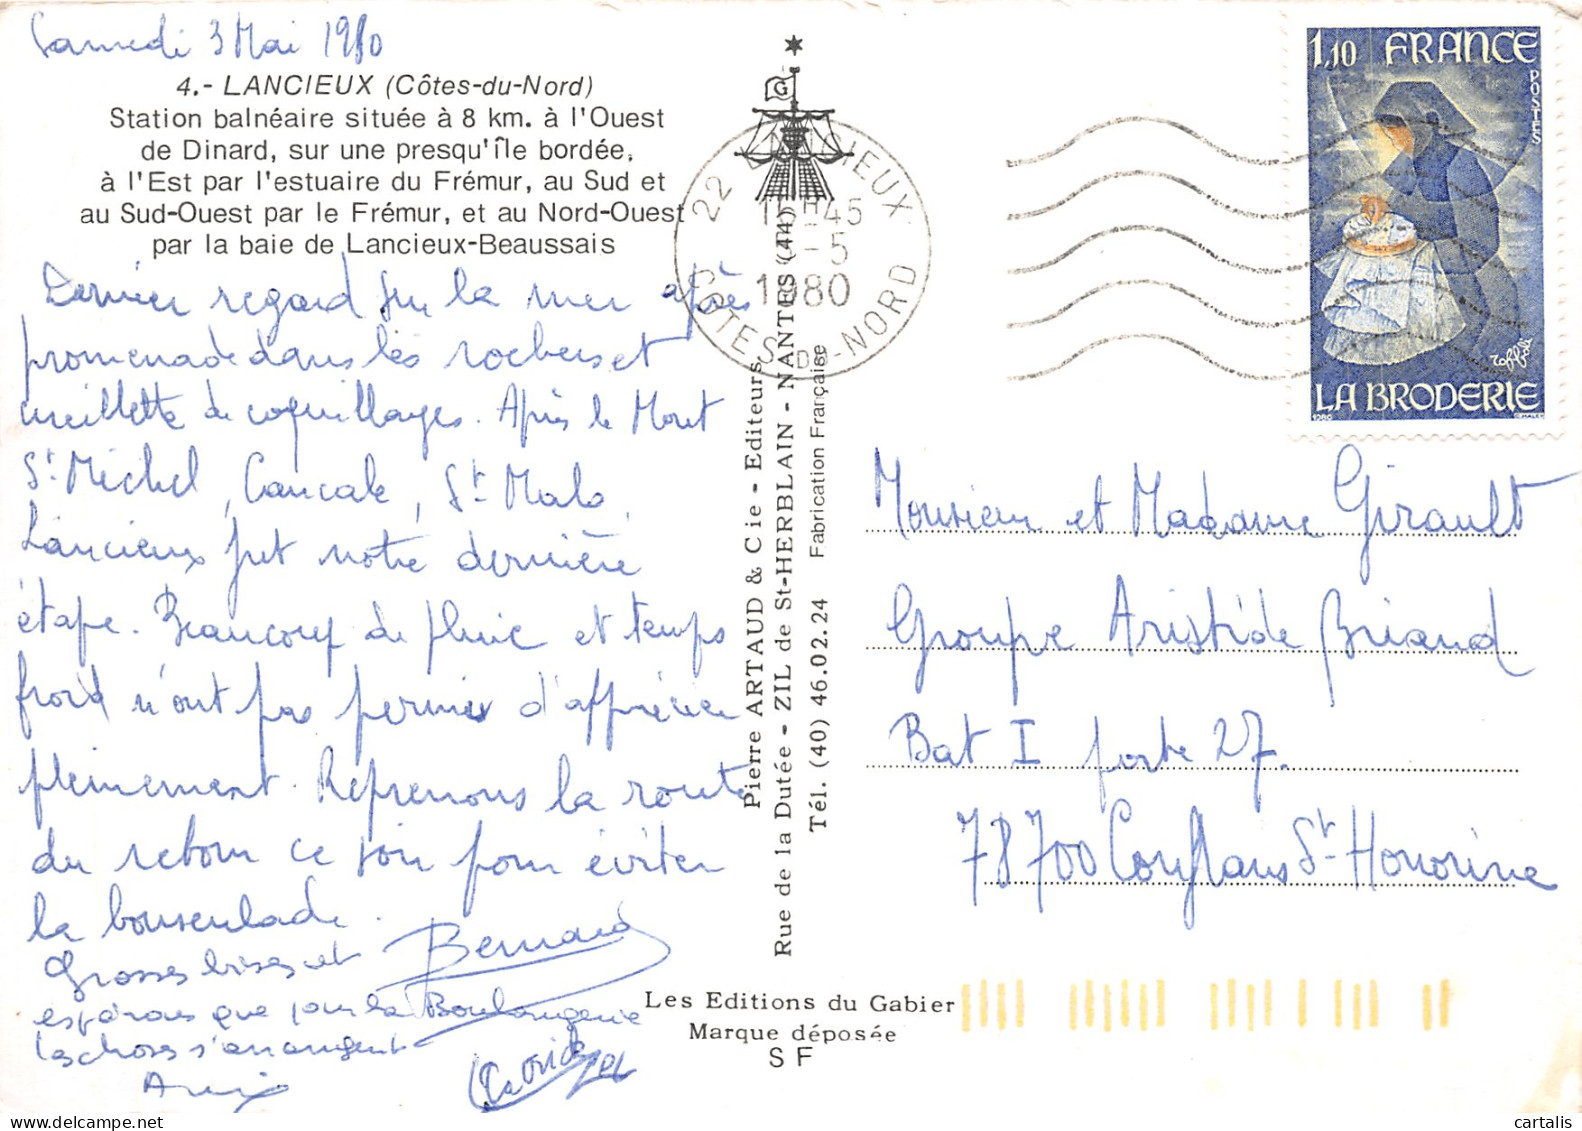 Samedi 3 Mai 1980
4.- LANCIEUX (Côtes-du-Nord)
Station balnéaire située à 8 km. à l'Ouest
de Dinard, sur une presqu'île bordée,
à l'Est par l'estuaire du Frémur, au Sud et
au Sud-Ouest par le Frémur, et au Nord-Ouest
par la baie de Lancieux-Beaussais
Dernier regard sur la mer après
promenade dans les rochers et
cueillette de coquillages. Après le Mont
St Michel, Cancale, St Malo,
Lancieux fut notre dernière
étape. Beaucoup de pluie et temps
froid n'ont pas permis d'apprécier
pleinement. Reprenons la route
du retour ce soir pour éviter
la bousculade.
Grosses bises et
espérons que pour la Boulangerie
les choses s'arrangent
Bernard
G
22 LANCIEUX
15H45
-5
1980
COTES-DU-NORD
Pierre ARTAUD & Cie - Editeurs
Rue de la Dutée - ZIL de St-HERBLAIN - NANTES (44)
Tél. (40) 46.02.24 Fabrication Française
Les Editions du Gabier
Marque déposée
S F
1,10 FRANCE
POSTES
LA BRODERIE
1980
Monsieur et Madame Girault
Groupe Aristide Briand
Bat I porte 27.
78700 Conflans St-Honorine
cartalis